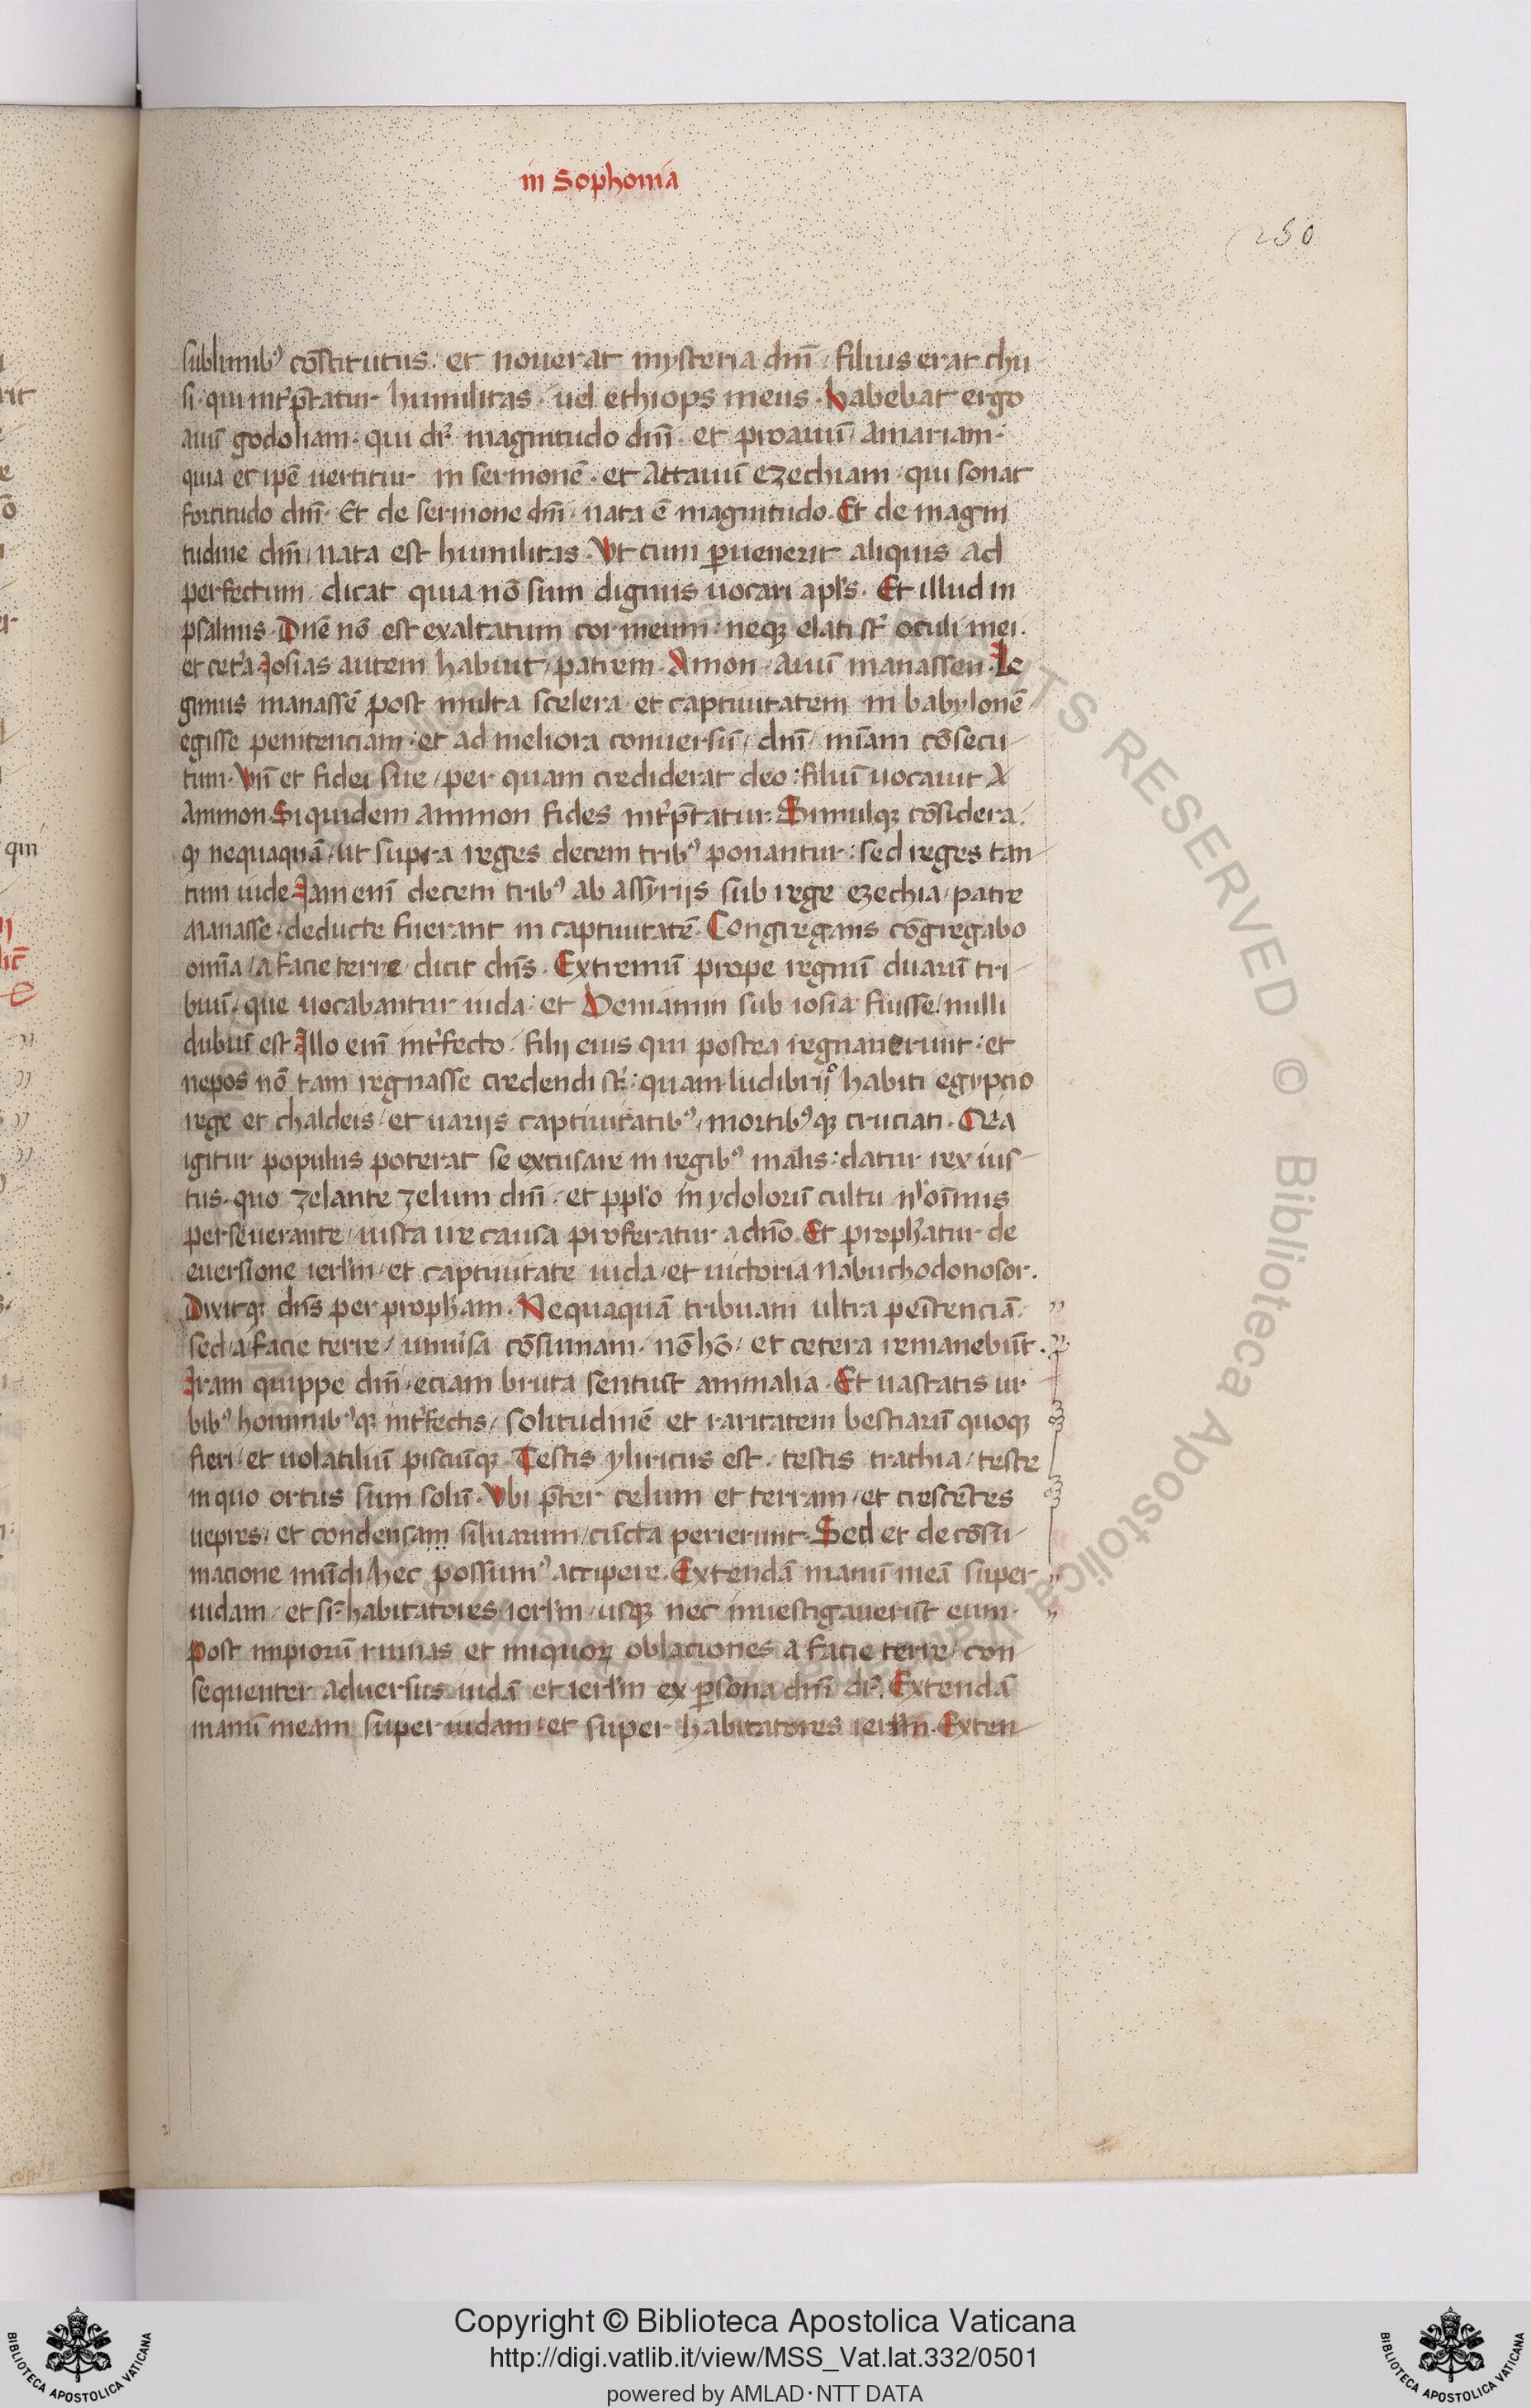 in Sophonia
250
sublimibꝰ cōstitutus. et nouerat mysteria dnī / filius erat chu
si. qui int̄p̄tatur humilitas. uel ethiops meus. habebat ergo
auū godoliam. qui dr̄ magnitudo dnī. et proauū amariam.
quia et ip̄e uertitur in sermonē. et attauū ezechiam / qui sonat
fortitudo dnī. Et de sermone dnī / nata ē magnitudo. Et de magni
tudine dnī / nata est humilitas. Vt cum ꝑuenerit aliquis ad
perfectum / dicat quia nō sum dignus uocari apl's. Et illud in
psalmis. Dn̄e nō est exaltatum cor meum: neqꝫ elati st̄ oculi mei.
et cet̄a. Josias autem habuit / patrem. Amon / auū manassen. Le
gimus manassē post multa scelera et captiuitatem in babylonē /
egisse penitenciam: et ad meliora conuersū / dnī / mīam cōsecu
tum. Vn̄ et fidei sue / per quam crediderat deo: filiū uocauit A
ammon. Siquidem ammon fides int̄p̄tatur. Simulqꝫ cōsidera.
ꝙ nequaquā / ut supra reges decem tribꝰ ponantur: sed reges tan
tum iude. Jam enī decem tribꝰ ab assyrijs sub rege ezechia / patre
Manasse / deducte fuerant in captiuitatē. Congregans cōgregabo
om̄ia / a facie terre / dicit dn̄s. Extremū prope regnū duarū tri
buū / que uocabantur iuda: et Beniamin sub iosia fuisse / nulli
dubiū est. Illo enī int̄fecto / filij eius qui postea regnauerunt: et
nepos nō tam regnasse credendi st̄: quam ludibrijº habiti egyptio
rege et chaldeis / et uarijs captiuitatibꝰ / mortibꝰqꝫ cruciati. Qꝛa
igitur populus poterat se excusare in regibꝰ malis: datur rex ius
tus. quo zelante zelum dnī / et ppl'o in ydolorū cultu n'oīmus
perseuerante / iusta ire causa proferatur a dn̄o. Et proph̄atur de
euersione ierl'm / et captiuitate iuda / et uictoria Nabuchodonosor.
Dixitqꝫ dn̄s per proph̄am. Nequaquā tribuam ultra pen̄tenciā.
sed / a facie terre / uniu'sa cōsumam / nō hō / et cetera remanebūt.
Iram quippe dnī / eciam bruta sentiūt animalia. Et uastatis ur
bibꝰ hominibꝰqꝫ int̄fectis / solitudinē et raritatem bestiarū quoqꝫ
fieri / et uolatiliū pisciūqꝫ. Testis yliricus est. testis trachia / teste
in quo ortus sum solū. Vbi p̄ter celum et terram / et crescētes
uepres / et condensam siluarum / cūcta perierunt. Sed et de cōsū
macione mūdi / hec possumꝰ accipere. Extendā manū meā super
iudam / et sr̄ habitatores ierl'm / usqꝫ nec inuestigauerūt eum.
Post impiorū ruinas et iniquoꝝ oblaciones a facie terre / con
sequenter aduersus iudā et ierl'm ex ꝑsona dnī dr̄. Extendā
manū meam super iudam / et super habitatores ierl'm. Exten
Copyright © Biblioteca Apostolica Vaticana
http://digi.vatlib.it/view/MSS_Vat.lat.332/0501
powered by AMLAD·NTT DATA